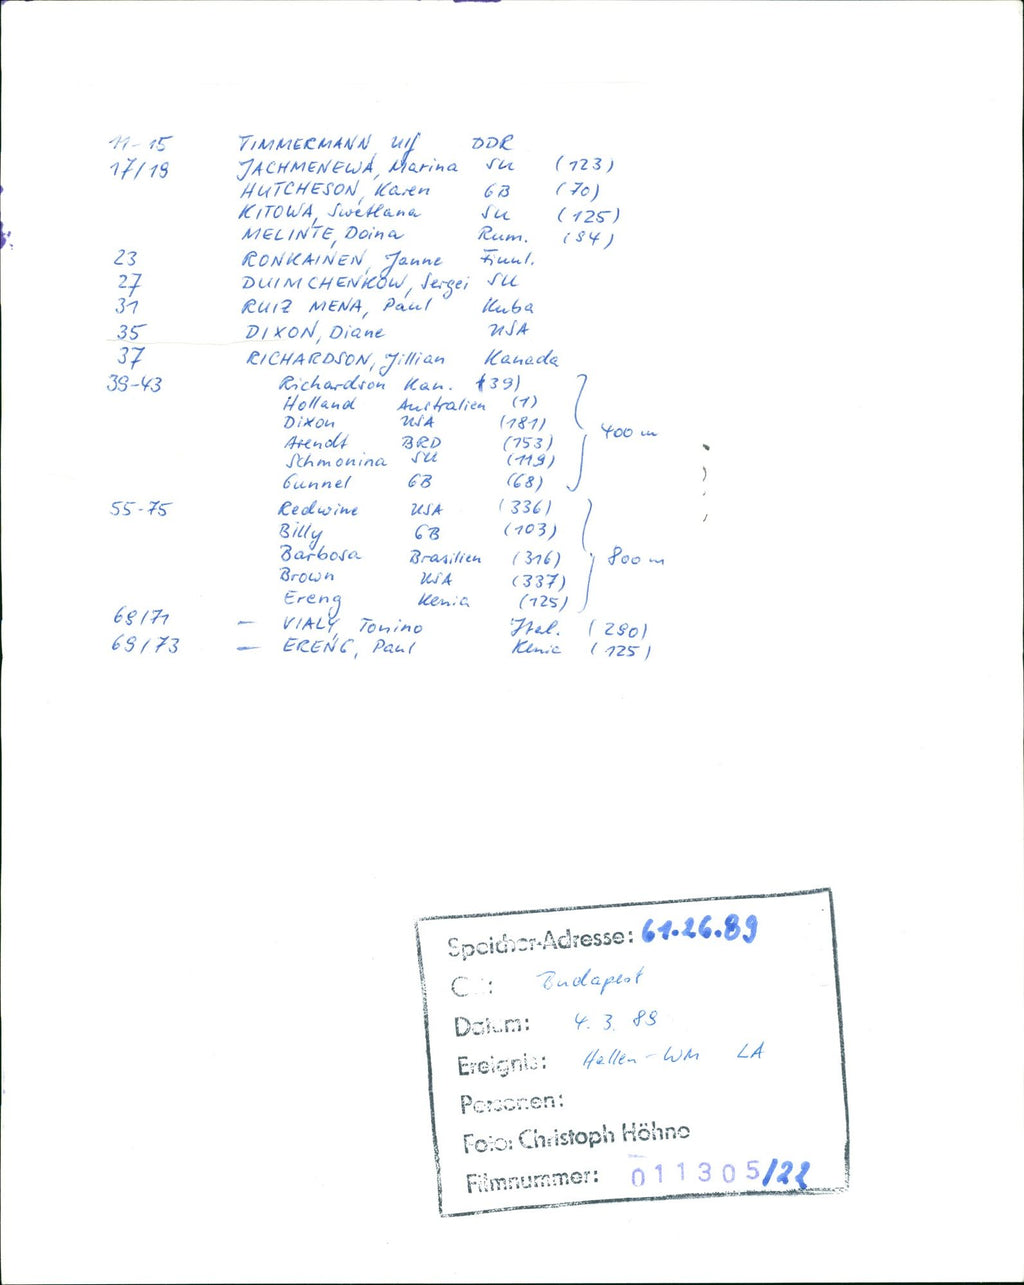 11-15 TIMMERMANN, Ulf DDR
17/19 JACHMENEWA, Marina SU (123)
HUTCHESON, Karen GB (70)
KITOWA, Swetlana SU (125)
MELINTE, Doina Rum. (94)
23 RONKAINEN, Janne Finnl.
27 DUIMCHENKOW, Sergei SU
31 RUIZ MENA, Paul Kuba
35 DIXON, Diane USA
37 RICHARDSON, Jillian Kanada
39-43 Richardson Kan. (39)
Holland Australien (1)
Dixon USA (181)
400 m
Arendt BRD (153)
Schmonina SU (119)
Gunnel GB (68)
55-75 Redwine USA (336)
Billy GB (103)
Barbosa Brasilien (316) 800 m
Brown USA (337)
Ereng Kenia (125)
69/71 - VIALY, Tonino Ital. (290)
69/73 - ERENG, Paul Kenia (125)
Speicher-Adresse: 61.26.89
Ort: Budapest
Datum: 4. 3. 89
Ereignis: Hallen-WM LA
Personen:
Foto: Christoph Höhne
Filmnummer: 011305/22